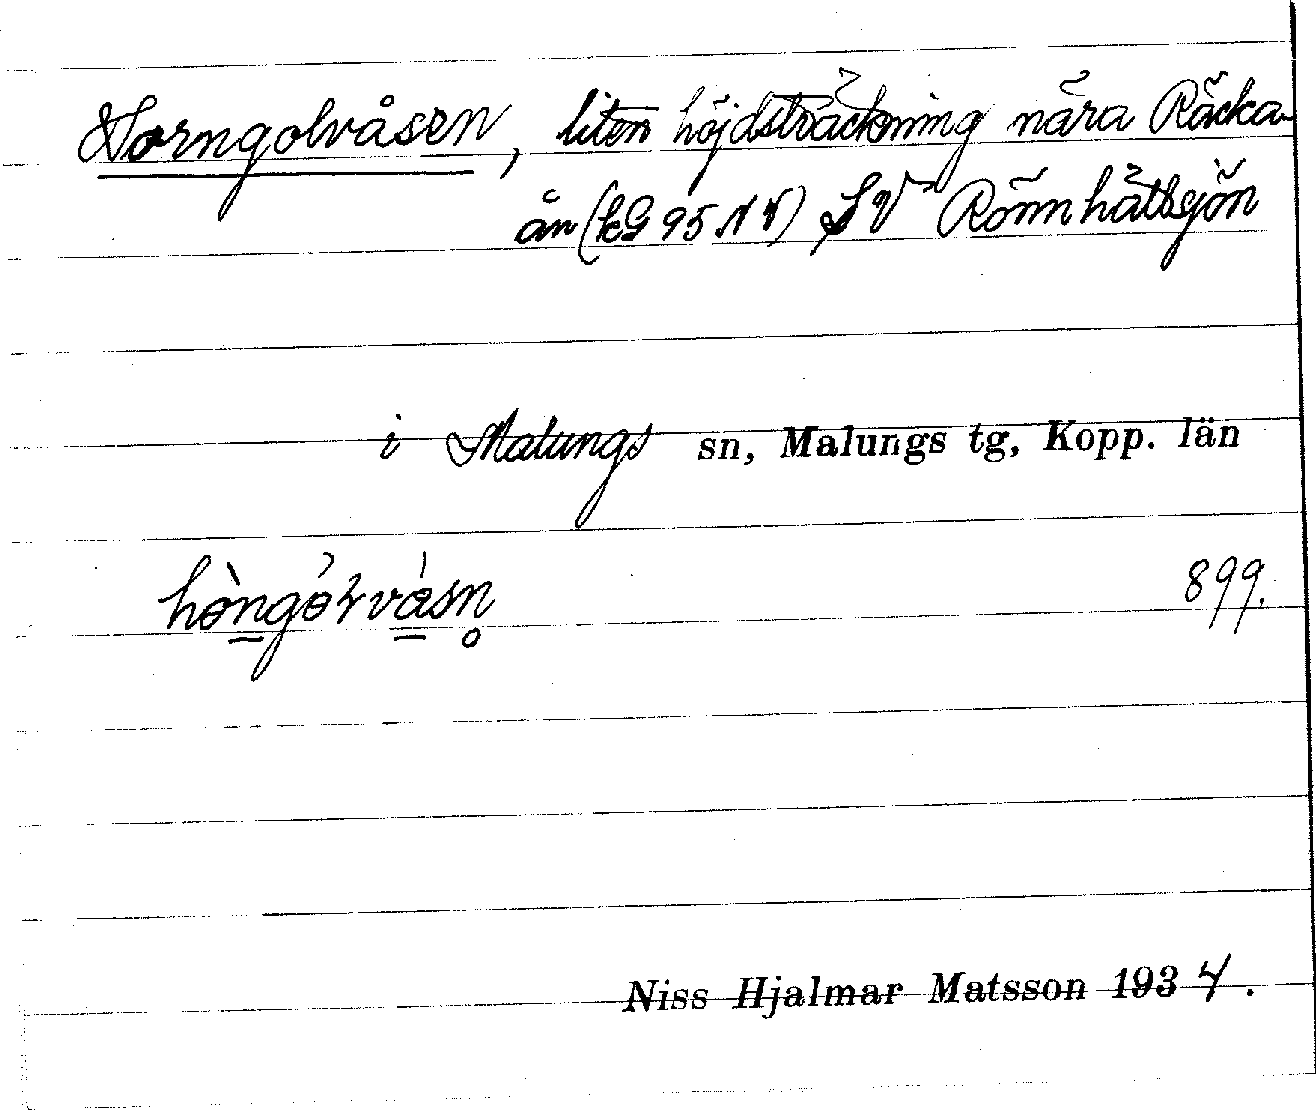 Horngolvåsen, liten höjdsträckning nära Räcka-
ån (kG 95 NV) SV Rönnhåttsjön
i Malungs sn, Malungs tg, Kopp. län
899.
Niss Hjalmar Matsson 1934.